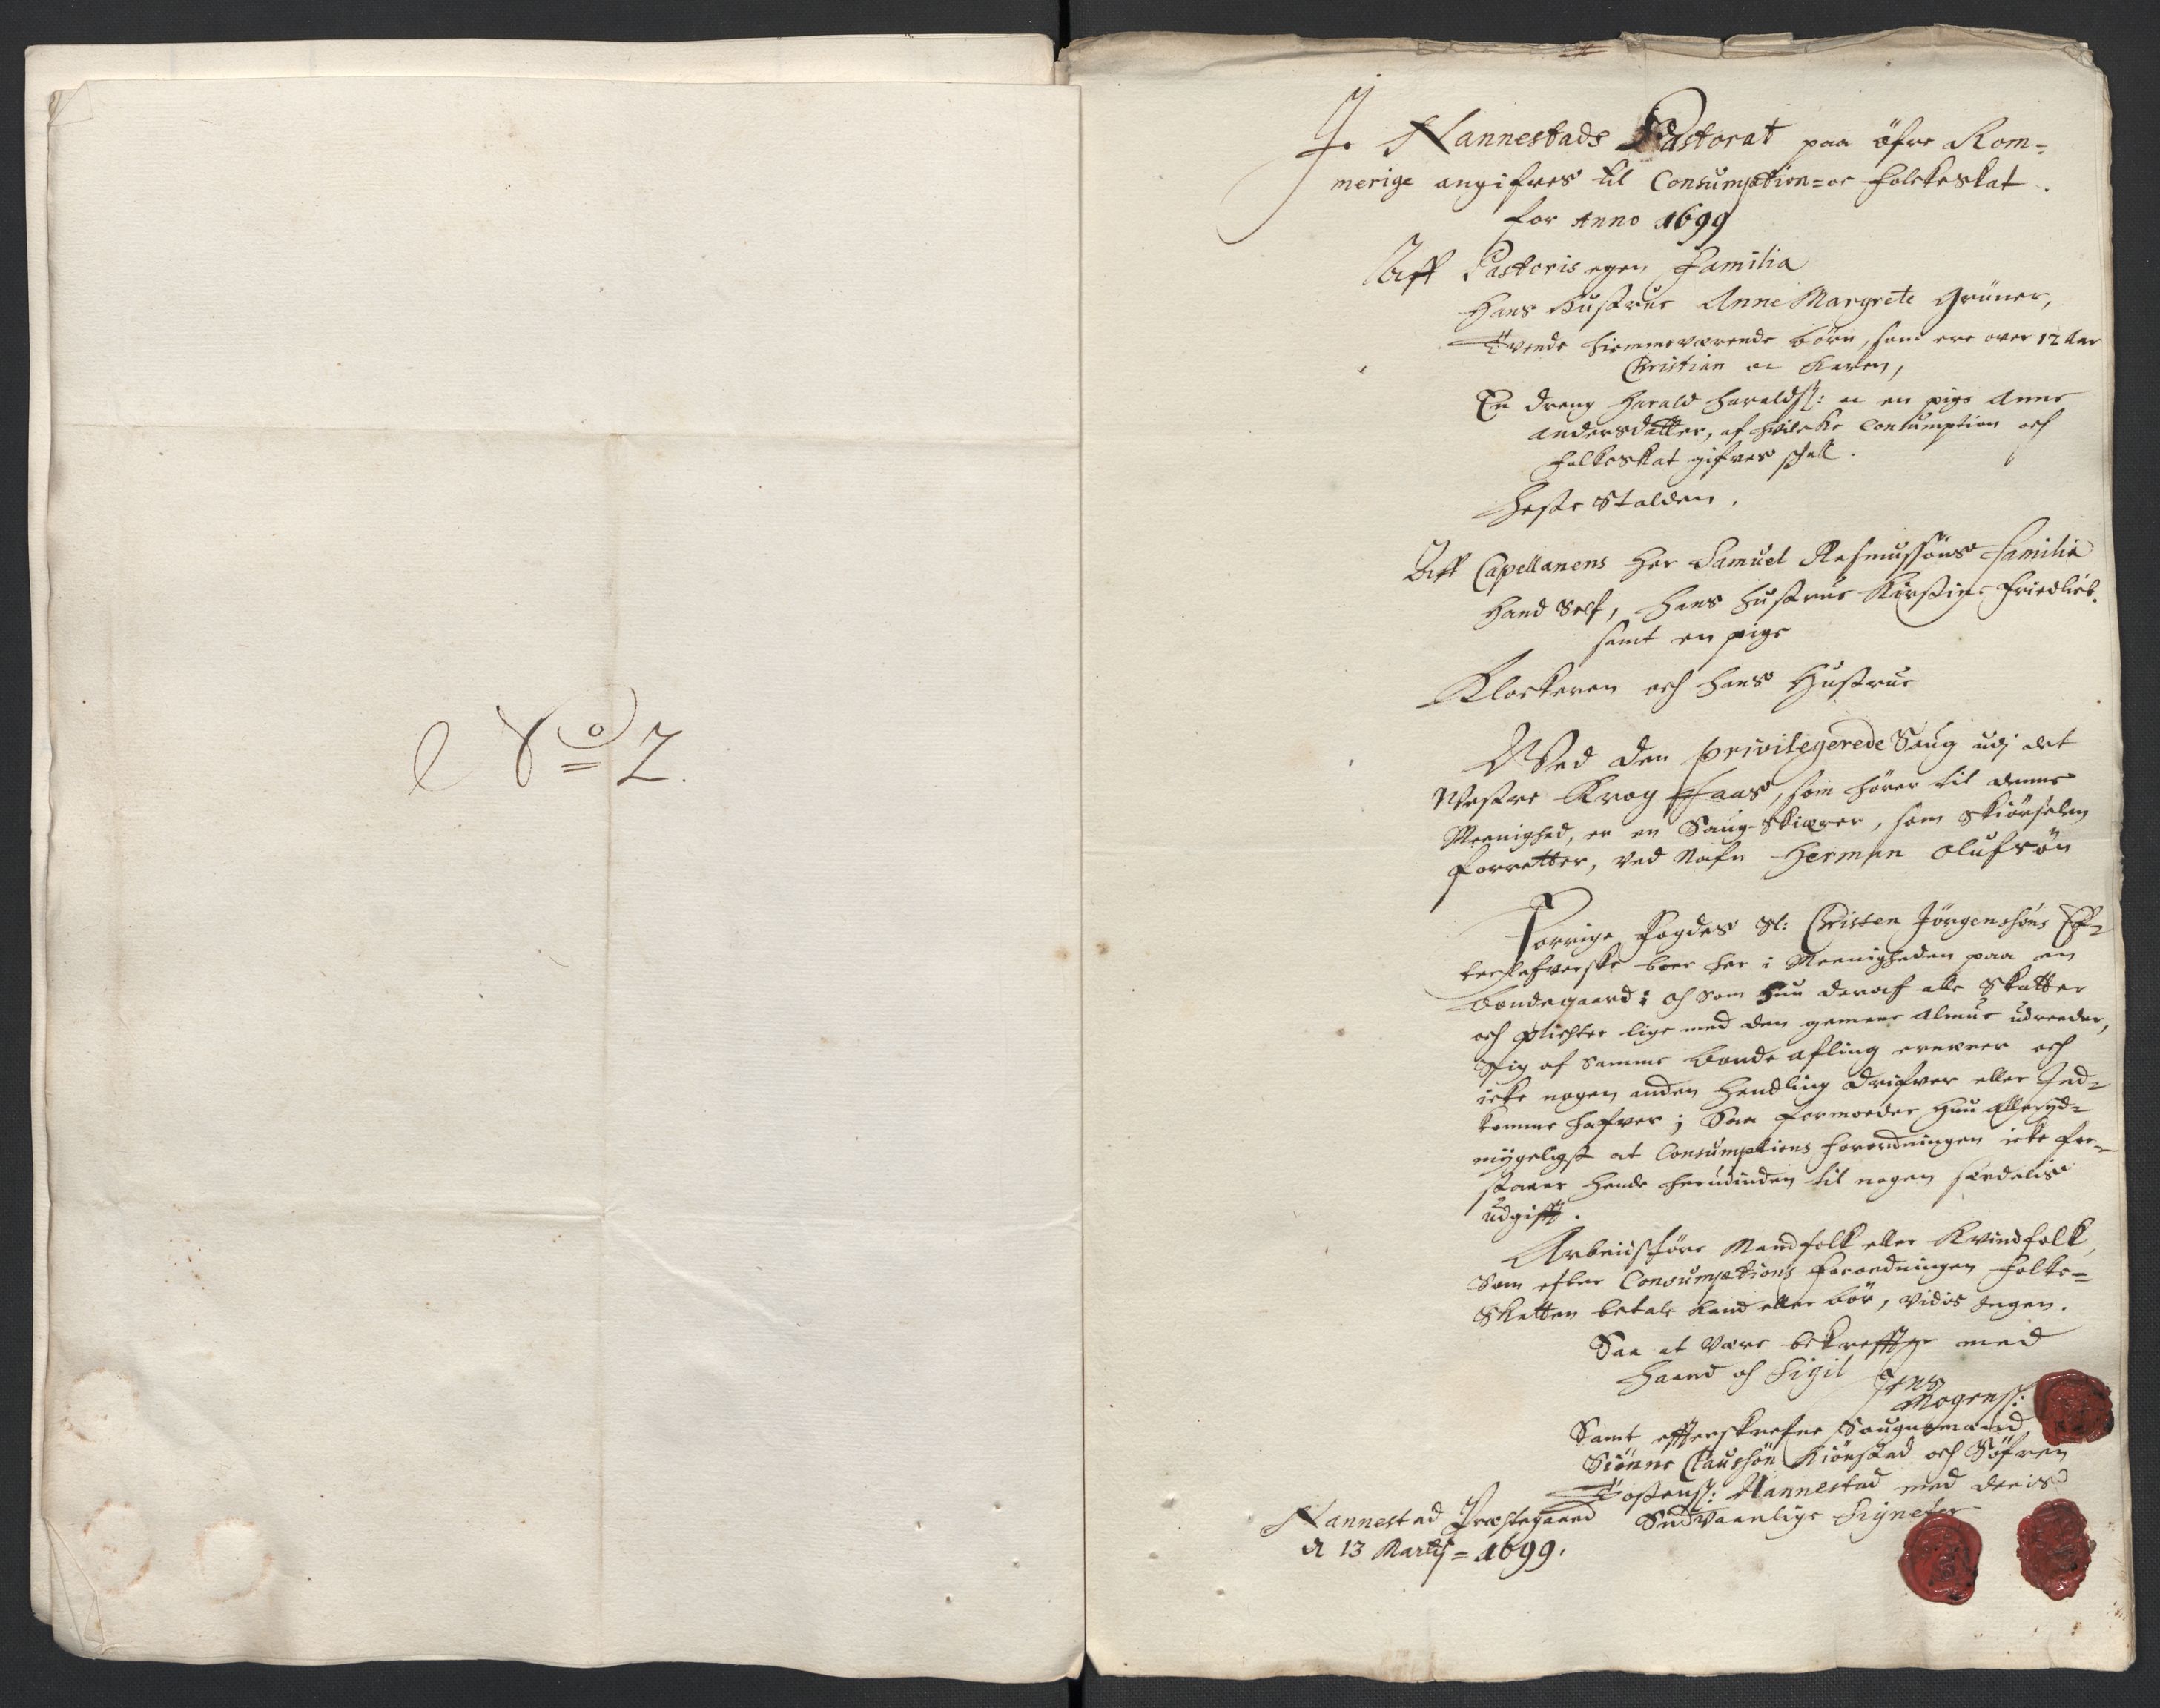 No 2.
I Nannestads Pastorat paa öfre Rom=
merige angifves til Consumption= oc Folckeskat.
for Anno 1699
Aff Pastoris egen Familia
Hans Hustrue Anne Margrete Grüner,
Tvende hiemmeværende börn, som ere over 12 Aar
Christian oc Karen,
En dreng Harald Haralds: oc en pige Anne
Andersdatter, af hvilcke Consumption och
Folkeskat gifves skal.
Heste Stalden.
Aff Capellanens Her Samuel Rasmussöns Familia
Hand Self, Hans Hustrue Kirstine Friedlieb.
samt en pige
Klockeren och hans Hustrue
Ved den privilegerede Saug udj det
Westre Krog Haas, som hörer til denne
Meenighed, er en Saug-Skiærer, som Skiörselen
forretter, ved Nafn Herman Olufsön
Forrige Fogdes Sl: Christen Jörgensöns Ef-
terlefverske boer her i Meenigheden paa en
bondegaard; Och som hun deraf alle Skatter
och plichter lige med den gemene Almue udreeder,
Sig af samme bonde afling ernærer och
icke nogen anden Handling drifver eller Ind-
komme hafver; Saa formoder hun Allerÿd-
mÿgeligst at Consumptions Forordningen icke for-
staaer hende herudinden til nogen særdelis
udgifft.
Arbeidsföre Mandfolk eller Kvindfolk,
Som efter Consumptions Forordningen Folke-
Skatten betale kand eller bör, vides Ingen.
Saa at være bekrefftiger med
Haand och Sigil Jens
Mogenss:
Samt effterskrefne Saugnemænd
Siönne Claussön Kiönstad och Söfren
Tostenss: Nannestad med deris
Sædvaanlige Signeter
Nannestad Præstegaard
d 13 Martij = 1699.